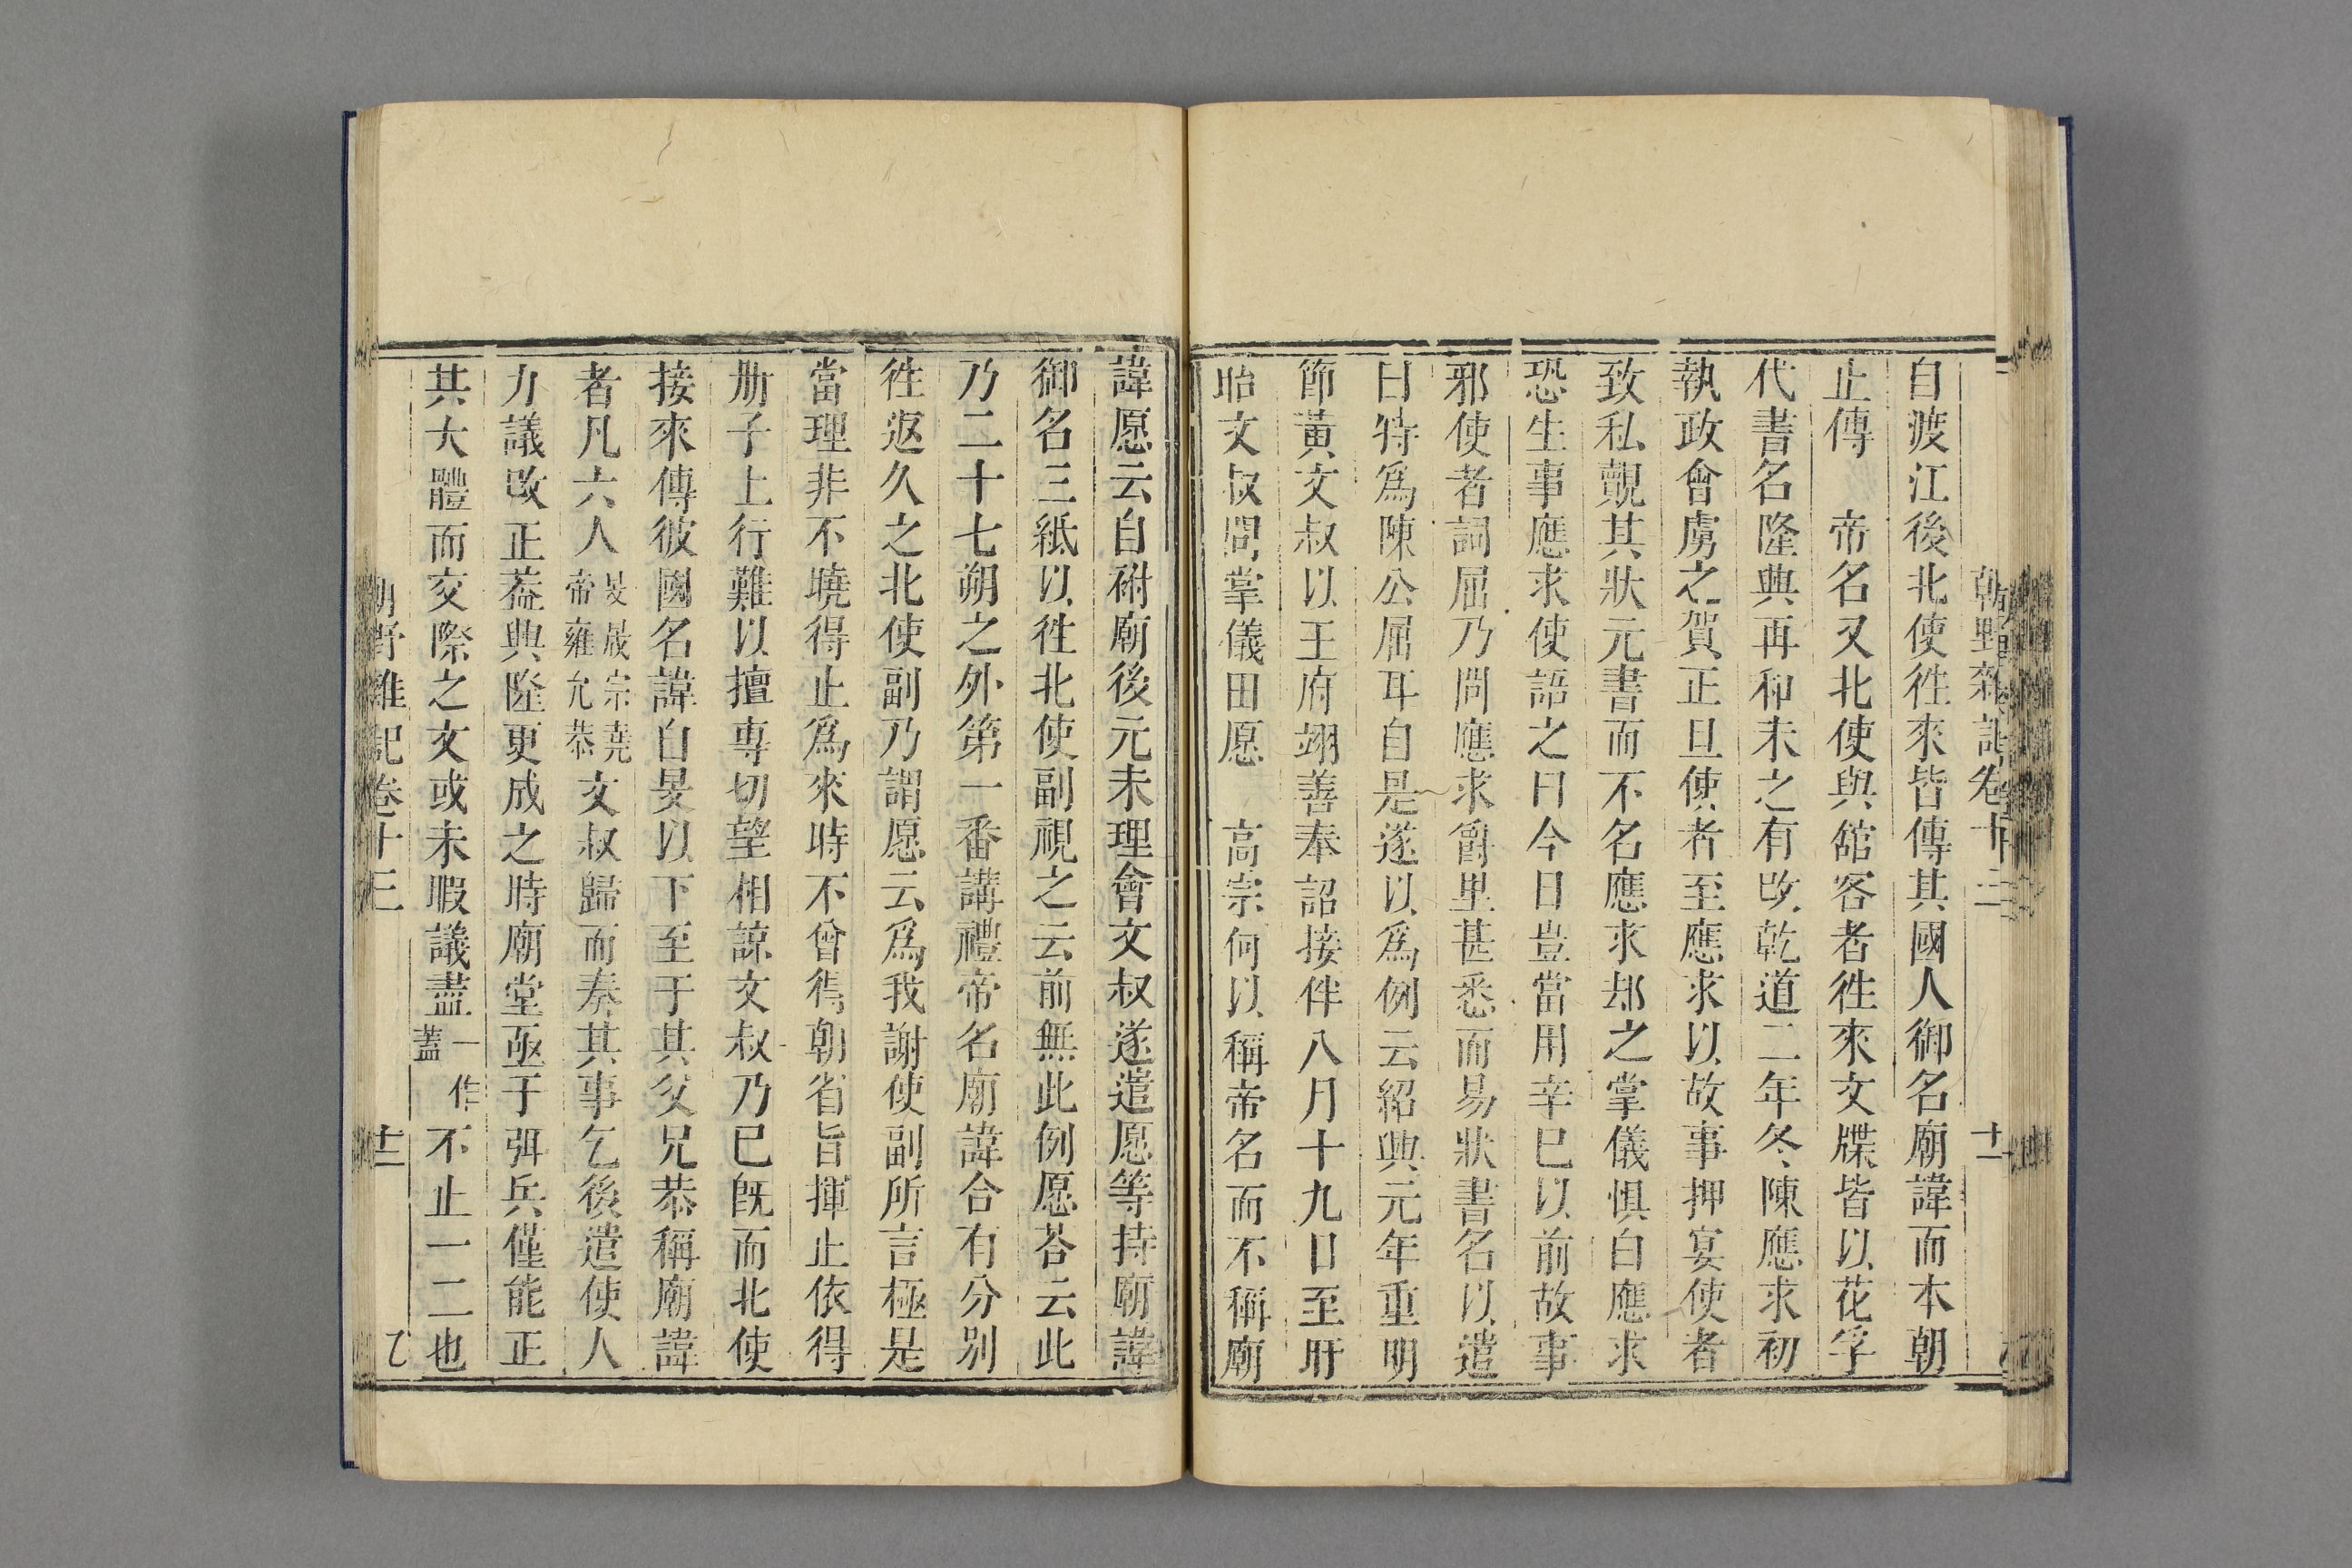 自渡江後北使徃來皆傳其國人御名廟諱而本朝
止傳　帝名又北使與舘客者徃來文牒皆以花孚
代書名隆興再和未之有改乾道二年冬陳應求初
執政會虜之賀正旦使者至應求以故事押宴使者
致私覿其狀元書而不名應求却之掌儀惧白應求
恐生事應求使語之曰今日豈當用辛巳以前故事
邪使者詞屈乃問應求爵里甚悉而易狀書名以遣
曰特爲陳公屈耳自是遂以爲例云紹興元年重明
節黃文叔以王府翊善奉詔接伴八月十九日至盱
眙文叔問掌儀田愿　高宗何以稱帝名而不稱廟
諱愿云自祔廟後元未理會文叔遂遣愿等持廟諱
御名三紙以徃北使副視之云前無此例愿荅云此
乃二十七朔之外第一番講禮帝名廟諱合有分别
徃返久之北使副乃謂愿云爲我謝使副所言極是
當理非不曉得止爲來時不曾得朝省旨揮止依得
册子上行難以擅專切望相諒文叔乃巳旣而北使
接來傳彼國名諱自旻以下至于其父兄恭稱廟諱
者凡六人旻晟宗堯帝雍允恭文叔歸而奏其事乞後遣使人
力議改正葢與隆更成之時廟堂亟于弭兵僅能正
其大體而交際之文或未暇議盡一作蓋不止一二也
朝野雜記卷十三　十二